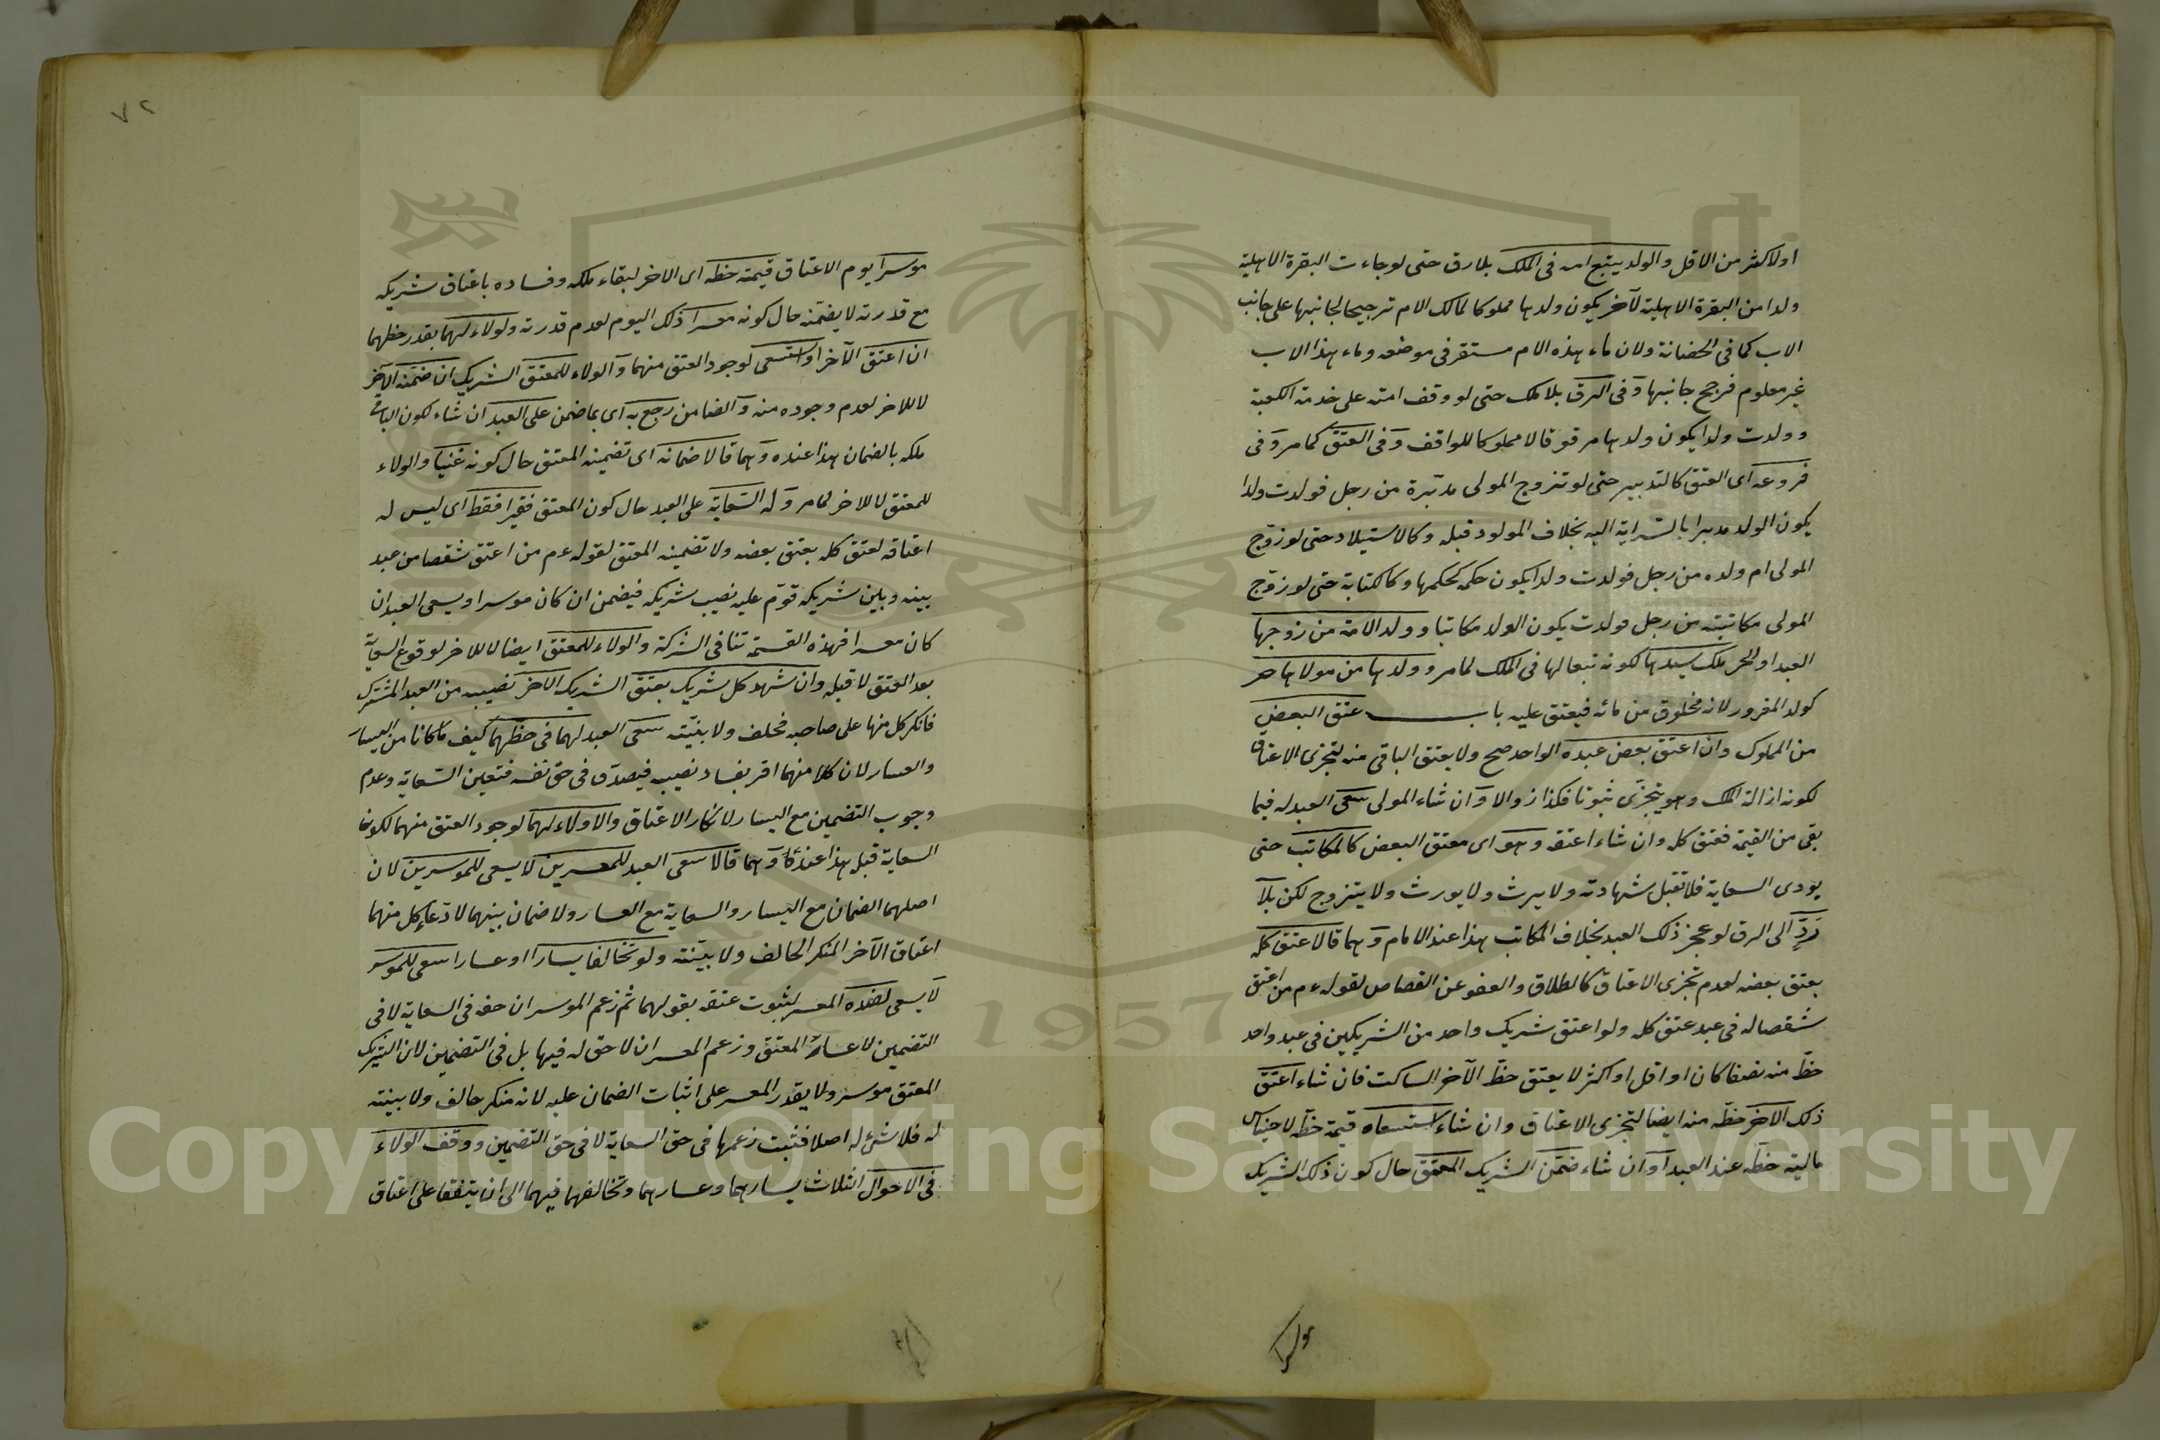 او لاكثر من الاقل والولد يتبع امه فى الملك بلا رق حتى لو جاءت البقرة الاهلية
ولدا من البقرة الاهلية لآخر يكون ولدها مملوكا لمالك الام ترجيحا لجانبها على جانب
الاب كما فى الحضانة ولان ماء هذه الام مستقر فى موضعه وماء هذا الاب
غير معلوم فرجح جانبها وفى الرق بلا ملك حتى لو وقف امته على خدمة الكعبة
وولدت ولدا يكون ولدها مرقوقا لا مملوكا للواقف وفى العتق كما مر وفى
فروعه اى العتق كالتدبير حتى لو تزوج المولى مدبرة من رجل فولدت ولدا
يكون الولد مدبرا بالسراية اليه بخلاف المولود قبله وكالاستيلاد حتى لو زوج
المولى ام ولده من رجل فولدت ولدا يكون حكمه كحكمها وكالكتابة حتى لو زوج
المولى مكاتبته من رجل فولدت يكون الولد مكاتبا وولد الامة من زوجها
العبد او الحر ملك سيدها لكونه تبعا لها فى الملك لما مر وولدها من مولاها حر
كولد المغرور لانه مخلوق من مائه فيعتق عليه باب عتق البعض
من المملوك وان اعتق بعض عبده الواحد صح ولا يعتق الباقى منه لتجزى الاعتاق
لكونه ازالة الملك وهو يتجزى ثبوتا فكذا زوالا وان شاء المولى سعى العبد له فيما
بقى من القيمة فعتق كله وان شاء اعتقه وهو اى معتق البعض كالمكاتب حتى
يودى السعاية فلا تقبل شهادته ولا يرث ولا يورث ولا يتزوج لكن بلا
رد الى الرق لو عجز ذلك العبد بخلاف المكاتب هذا عند الامام وهما قالا عتق كله
بعتق بعضه لعدم تجزى الاعتاق كالطلاق والعفو عن القصاص لقوله عم من اعتق
شقصا له فى عبد عتق كله ولو اعتق شريك واحد من الشريكين فى عبد واحد
حظه منه نصفا كان او اقل او اكثر لا يعتق حظ الآخر الساكت فان شاء اعتق
ذلك الآخر حظه منه ايضا لتجزى الاعتاق وان شاء استسعاه قيمة حظه لاحتباس
مالية حظه عند العبد وان شاء ضمن الشريك المعتق حال كون ذلك الشريك
موسرا
٧٢
موسرا يوم الاعتاق قيمة حظه اى الآخر لبقاء ملكه وفساده باعتاق شريكه
مع قدرته لا يضمنه حال كونه معسرا ذلك اليوم لعدم قدرته ولولاء لهما بقدر حظهما
ان اعتق الآخر او استسعى لوجود العتق منهما والولاء للمعتق الشريك ان ضمنه الآخر
لا للاخر لعدم وجوده منه والضامن رجع به اى بما ضمن على العبد ان شاء لكون الباقى
ملكه بالضمان هذا عنده وهما قالا ضمانه اى تضمينه المعتق حال كونه غنيا والولاء
للمعتق لا للاخر لما مر وله السعاية على العبد حال كون المعتق فقيرا فقط اى ليس له
اعتاقه لعتق كله بعتق بعضه ولا تضمينه المعتق لقوله عم من اعتق شقصا من عبد
بينه وبين شريكه قوم عليه نصيب شريكه فيضمن ان كان موسرا ويسعى العبد ان
كان معسرا فهذه القسمة تنافى الشركة والولاء للمعتق ايضا لا للاخر لوقوع السعاية
بعد العتق لا قبله وان شهد كل شريك بعتق الشريك الآخر نصيبه من العبد المشترك
فانكر كل منهما على صاحبه فحلف ولا بينة سعى العبد لهما فى حظهما كيف ما كانا من اليسار
والعسار لان كلا منهما اقر بفساد نصيبه فيصدق فى حق نفسه فتعين السعاية وعدم
وجوب التضمين مع اليسار لانكار الاعتاق والولاء لهما لوجود العتق منهما لكون
السعاية قبل هذا عنده وهما قالا سعى العبد للمعسرين لا يسعى للموسرين لان
اصلهما الضمان مع اليسار والسعاية مع العسار ولا ضمان بينهما لادعاء كل منهما
اعتاق الآخر المنكر الحالف ولا بينة ولو تخالفا يسارا او عسارا سعى للموسر
لا يسعى لضده المعسر لثبوت عتقه بقولهما ثم زعم الموسر ان حقه فى السعاية لا فى
التضمين لاعسار المعتق وزعم المعسر ان لا حق له فيها بل فى التضمين لان الشريك
المعتق موسر ولا يقدر المعسر على اثبات الضمان عليه لانه منكر حالف ولا بينة
له فلا شئ له اصلا فثبت زعمهما فى حق السعاية لا فى حق التضمين ووقف الولاء
فى الاحوال الثلاث يسارهما وعسارهما وتخالفهما فيهما الى ان يتفقا على اعتاق
1957
Copyright © King Saud University